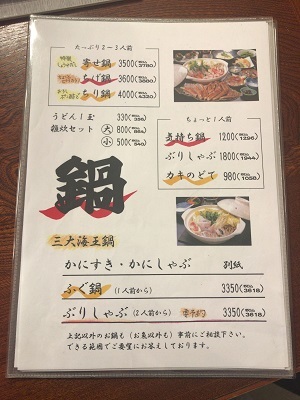 たっぷり2〜3人前
寄せ鍋 3500(税込3780)
ちげ鍋 3600(税込3888)
ちり鍋 4000(税込4320)
うどん1玉 330(税込356)
雑炊セット 大 800(税込864)
小 500(税込540)
ちょっと1人前
気持ち鍋 1200(税込1296)
ぶりしゃぶ 1800(税込1944)
カキのどて 980(税込1058)
鍋
三大海王鍋
かにすき・かにしゃぶ 別紙
ふぐ鍋 (1人前から) 3350(税込3618)
ぶりしゃぶ (2人前から) 要予約 3350(税込3618)
上記以外のお鍋も(お魚以外も)事前にご相談下さい。
できる範囲でご要望にお答えしております。